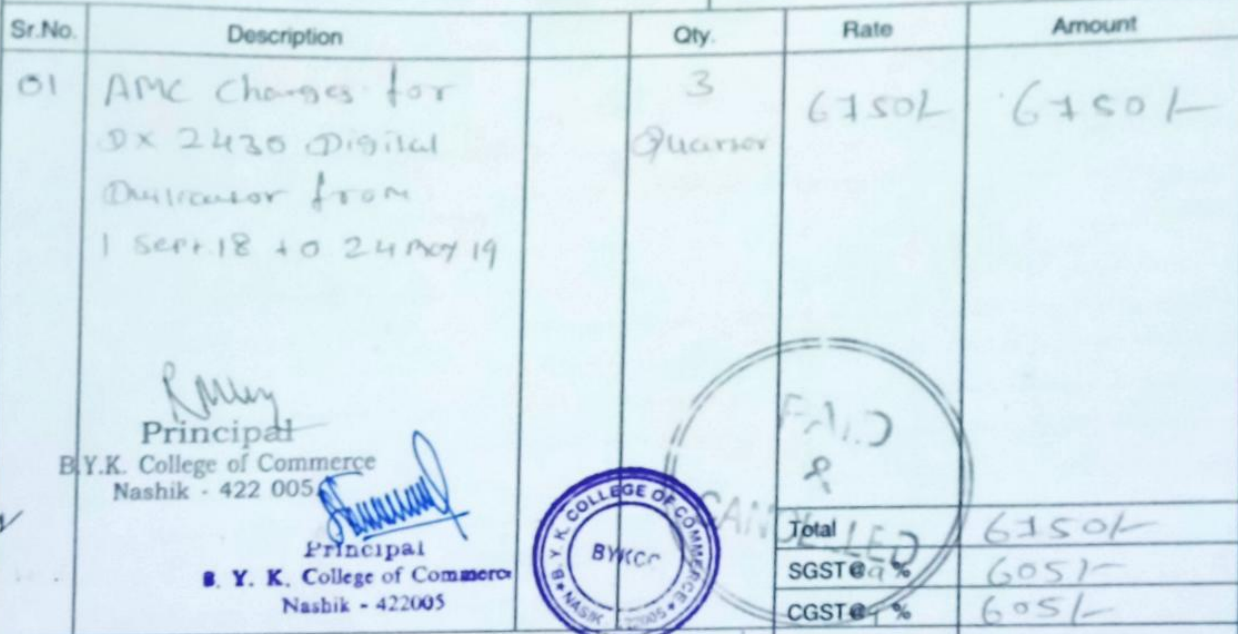 Sr.No. Description Qty. Rate Amount
01 AMC Charges for 3 6750/- 6750/-
DX 2430 Digital Quarter
Duplicator from
1 Sept.18 to 24 May 19
Principal
B.Y.K. College of Commerce
Nashik - 422 005
Principal
B. Y. K. College of Commerce
Nashik - 422005
B. Y. K. COLLEGE OF COMMERCE
BYKCC
NASIK 422005
PAID
&
CANCELLED
Total 6750/-
SGST@9% 605/-
CGST@ % 605/-